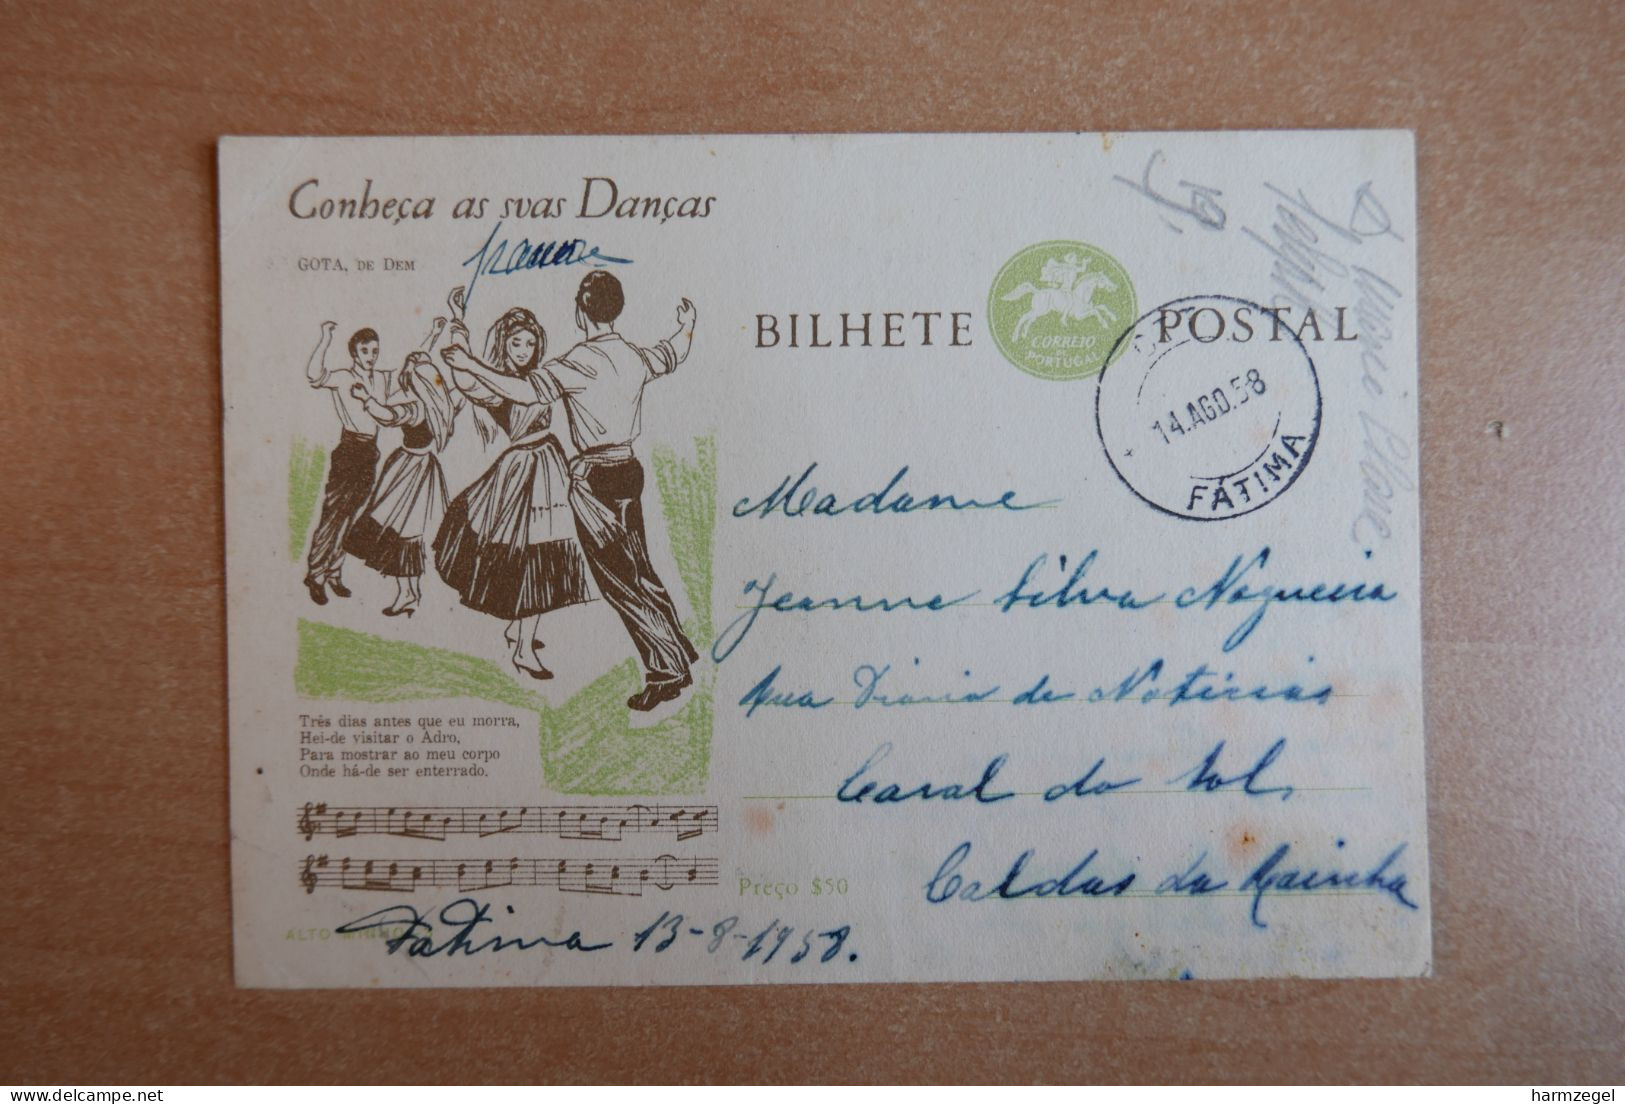 Conheça as svas Danças
GOTA, DE DEM
BILHETE
CORREIO
DE
PORTUGAL
POSTAL
14.AGO.58
FÁTIMA
Madame
Jeanne Silva Nogueira
Rua Diario de Noticias
Casal do Sol,
Caldas da Rainha
Três dias antes que eu morra,
Hei-de visitar o Adro,
Para mostrar ao meu corpo
Onde há-de ser enterrado.
Preço $50
ALTO MINHO
Fatima 13-8-1958.
harmzegel